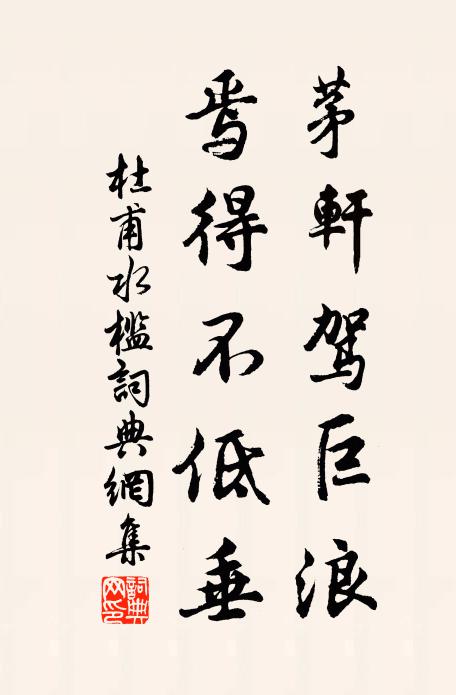 茅軒駕巨浪
焉得不低垂
杜甫水檻詞典網集
詞典网印